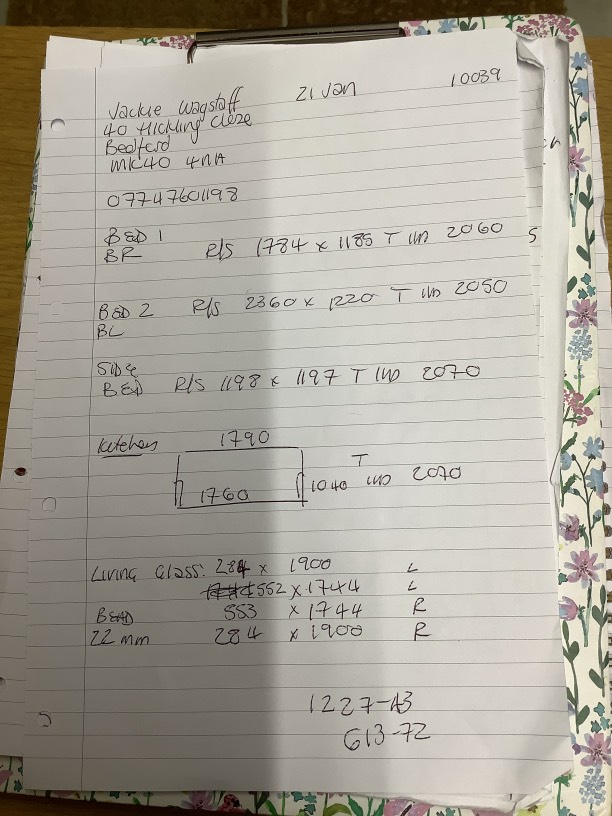 21 Jan 10039
Jackie Wagstaff
40 Hickling Close
Bedford
MK40 4NA
07747601198
BED 1 R/S 1784 x 1185 T IND 2060 S
BR
BED 2 R/S 2360 x 1220 T IND 2050
BL
SIDE
BED R/S 1198 x 1197 T IND 2070
Kitchen 1790
T
1760 1040 IND 2070
Living Glass: 284 x 1900 L
552 x 1744 L
BEAD 553 x 1744 R
22 mm 284 x 1900 R
1227-43
613-72